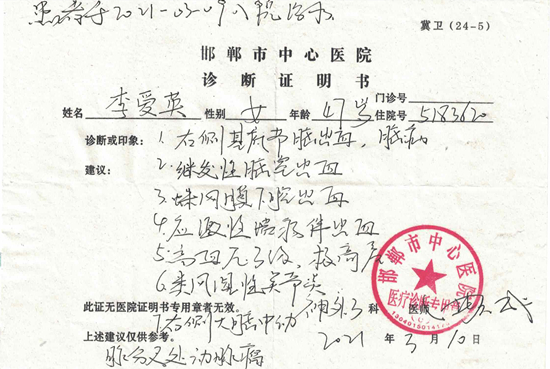 患者于2021-03-09入院治疗
冀卫(24-5)
邯郸市中心医院
诊断证明书
姓名 李爱英 性别 女 年龄 47岁 门诊号 住院号 518362
诊断或印象: 1.右侧基底节脑出血,脑疝
建议: 2.继发性脑室出血
3.蛛网膜下腔出血
4.应激性溃疡伴出血
5.高血压3级,极高危
6.类风湿性关节炎
此证无医院证明书专用章者无效。 神外3 科 医师
7.右侧大脑中动
上述建议仅供参考。 2021 年 3 月 10 日
脉分叉处动脉瘤
邯郸市中心医院
医疗诊断专用章